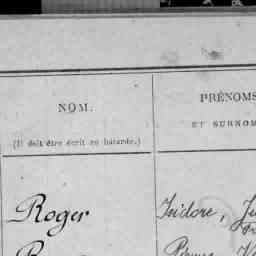 NOM.
(Il doit être écrit en bâtarde.)
PRÉNOMS
ET SURNOM
Roger
Isidore,